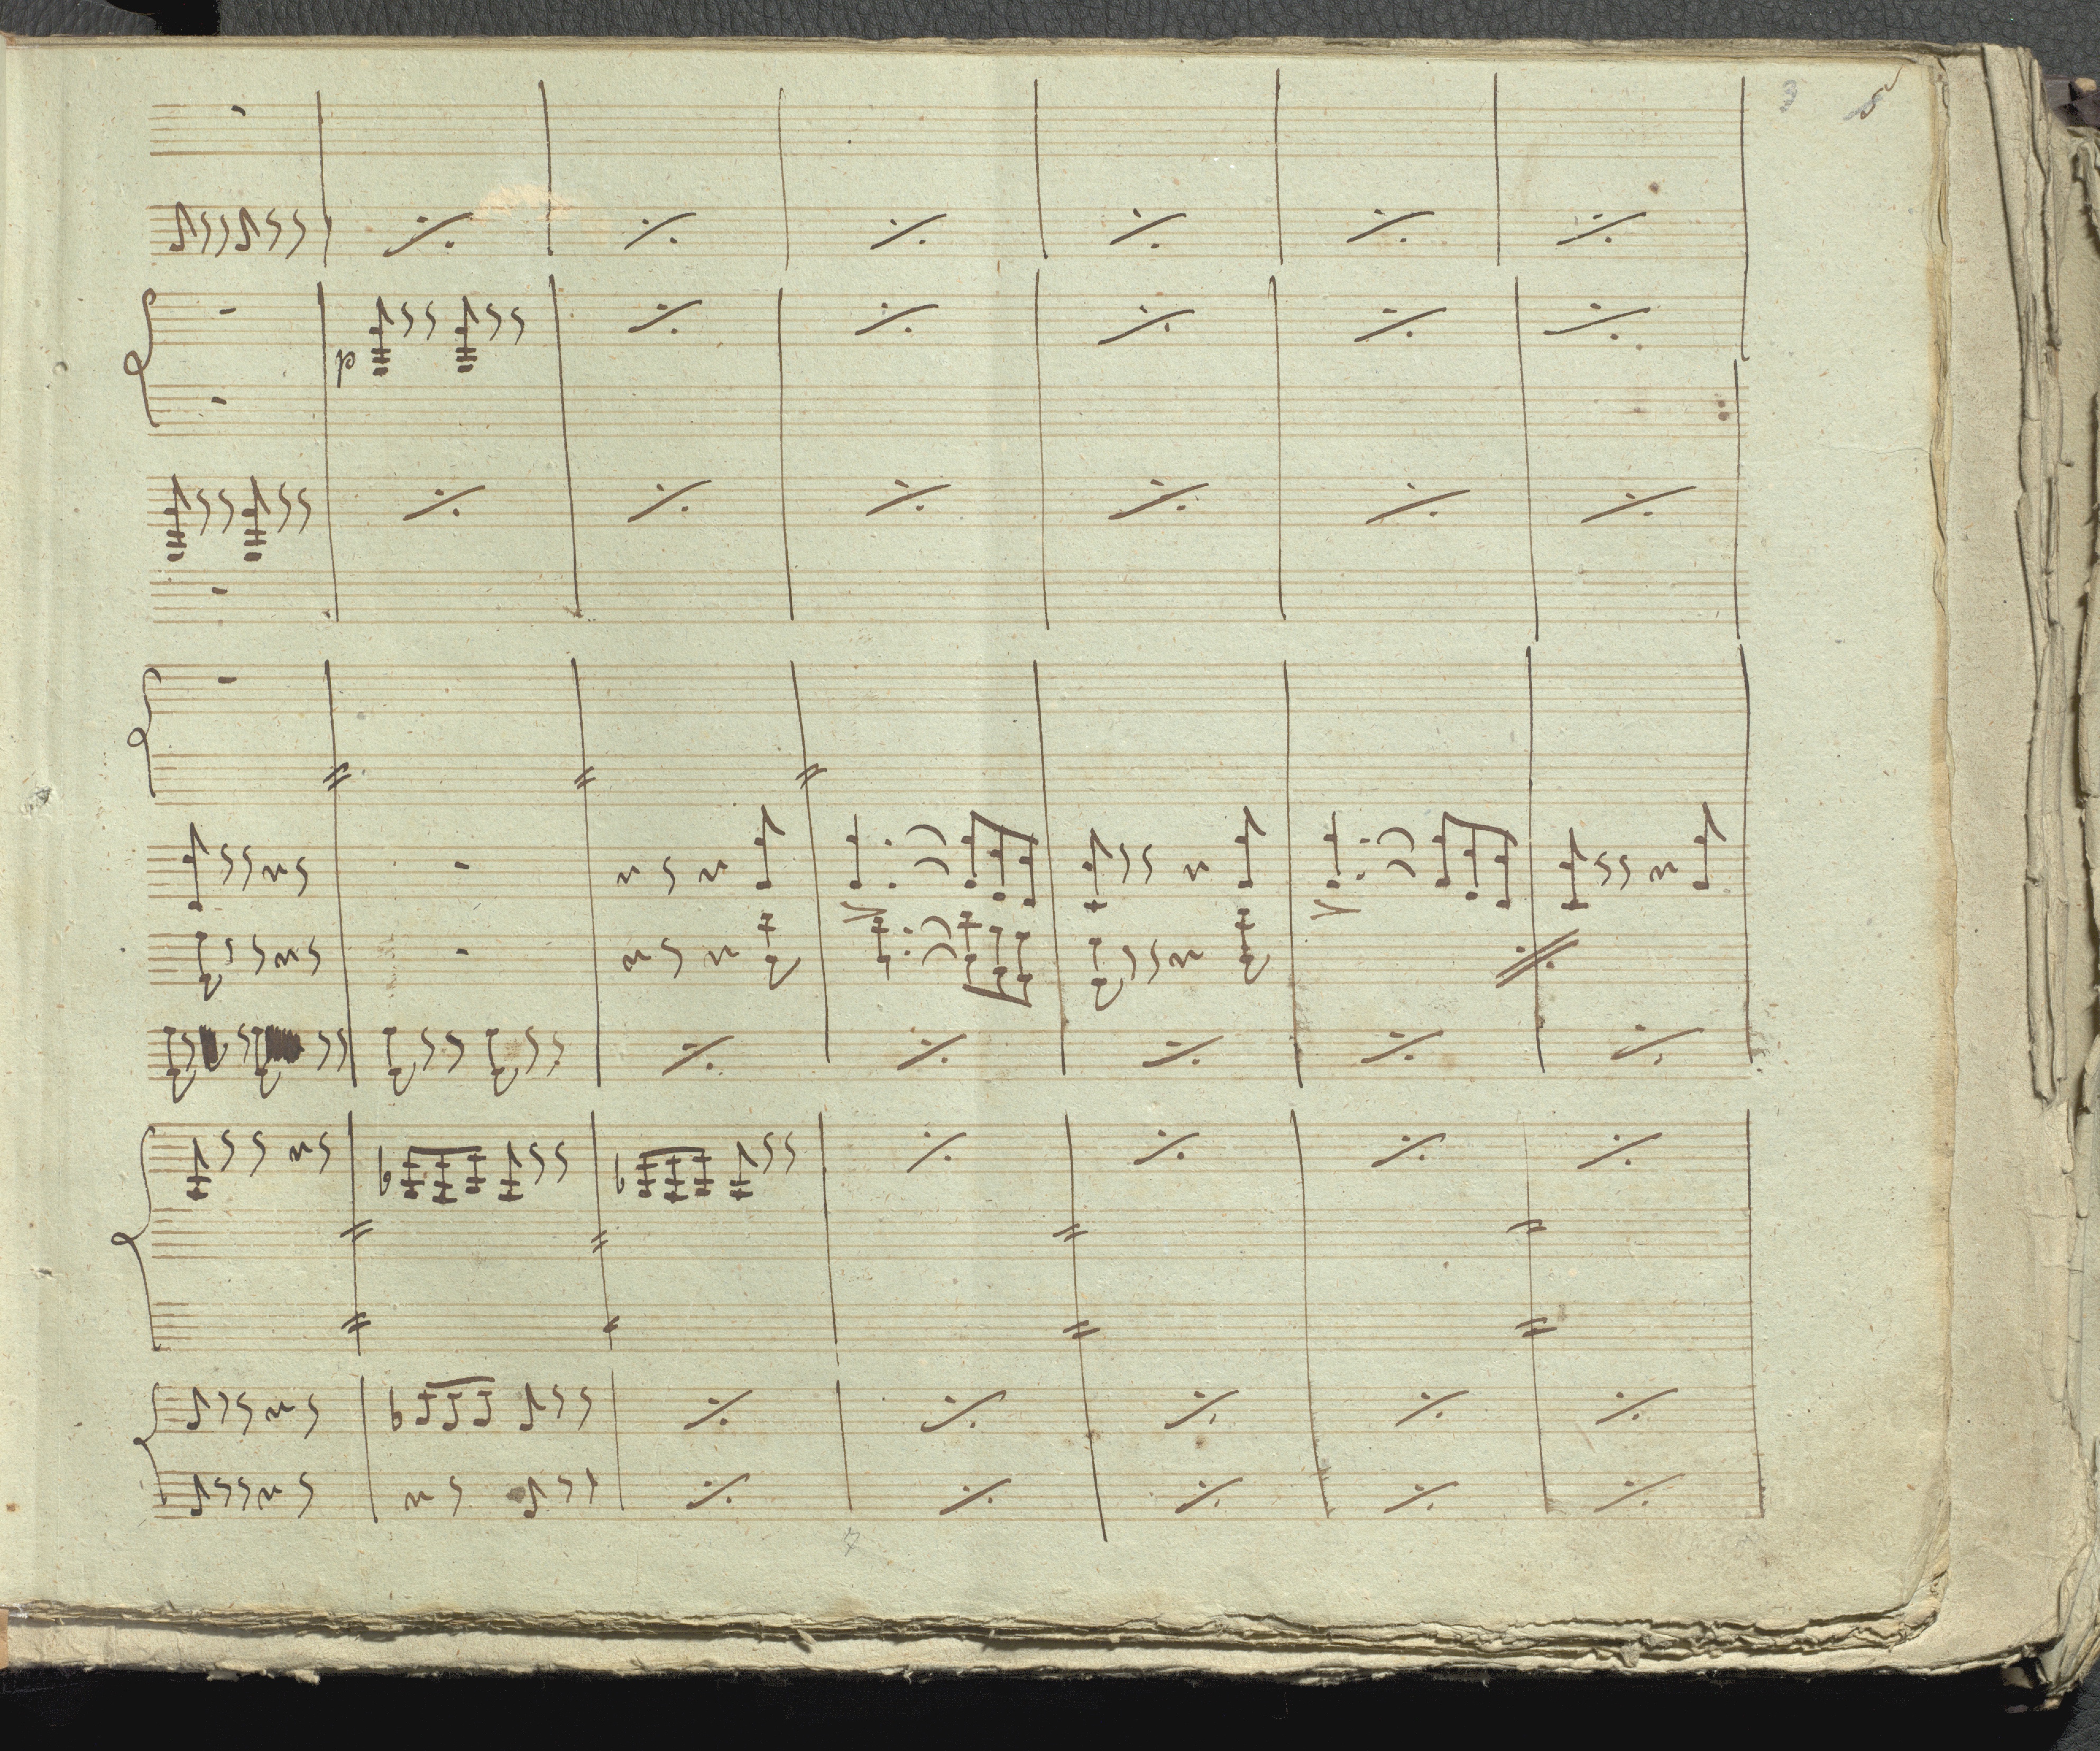 3 5
p